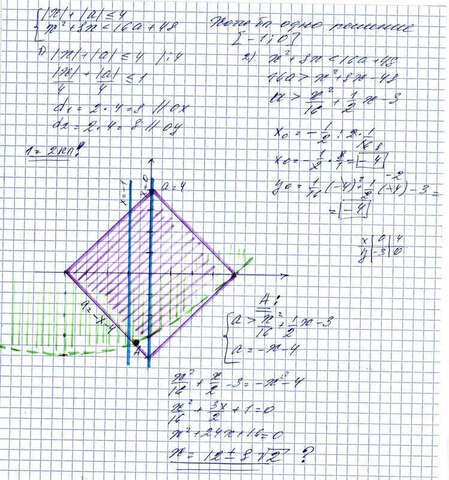 { |x| + |a| ≤ 4
x² + 8x < 16a + 48
Хотя бы одно решение
[-1; 0]
1) |x| + |a| ≤ 4 | : 4
|x|/4 + |a|/4 ≤ 1
d₁ = 2 · 4 = 8 || ox
d₂ = 2 · 4 = 8 || oy
1 = 2кл!
2) x² + 8x < 16a + 48
16a > x² + 8x - 48
a > x²/16 + 1/2 x - 3
x₀ = - 1/2 : 2 · 1/16
x₀ = - 1/2 · 8/1 = -4
y₀ = 1/16 · (-4)² + 1/2 (-4) - 3 =
= -4
x | 0 | 4
y | -3 | 0
x = -1
x = 0
a = 4
a = -x - 4
A
A:
{ a > x²/16 + 1/2 x - 3
a = -x - 4
x²/16 + x/2 - 3 = -x - 4
x²/16 + 3x/2 + 1 = 0
x² + 24x + 16 = 0
x = 12 ± 8√2 ?